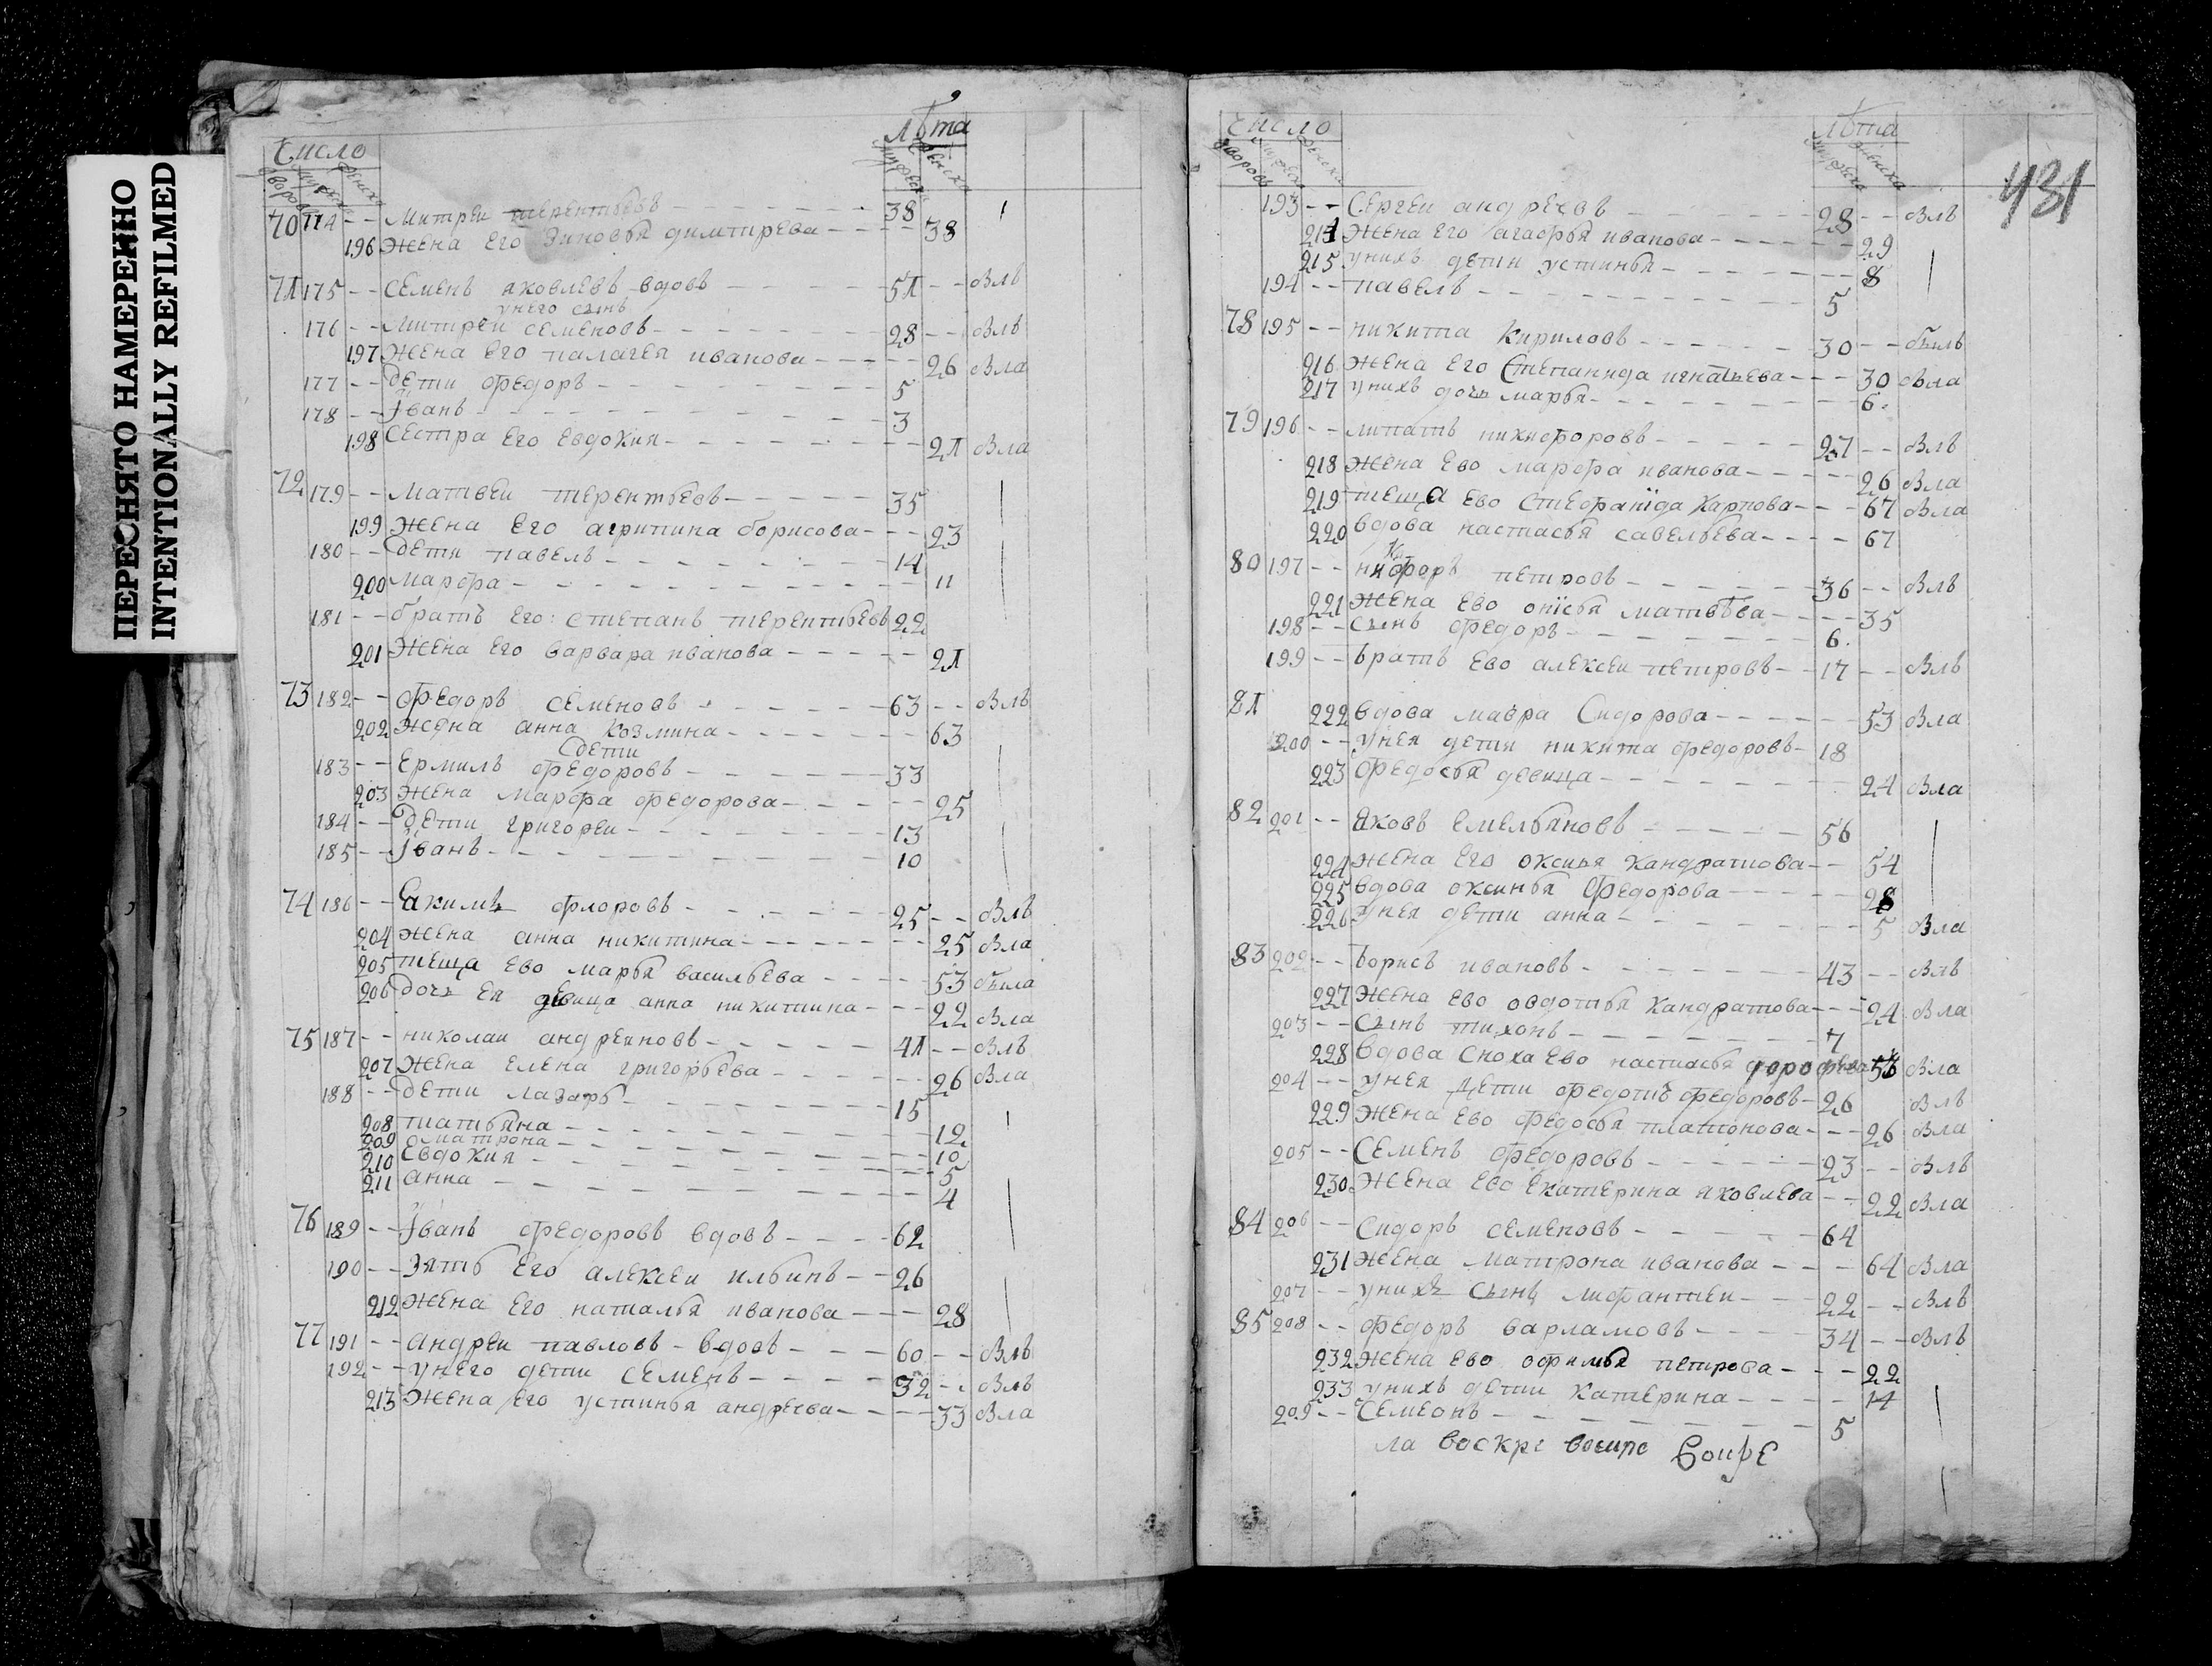 ПЕРЕСНЯТО НАМЕРЕННО
INTENTIONALLY REFILMED
Число лѣта
дворовъ мужеска женска мужеска женска
70 174 -- Митреи терентьевъ 38
196 жена Его Зиновья димитрева 38
71 175 -- Семенъ яковлевъ вдовъ 51 -- былъ
унего сынъ
176 -- Митреи семеновъ 28 -- былъ
197 жена Его палагея иванова 26 была
177 -- дети федоръ 5
178 -- Іванъ 3
198 Сестра Его Евдокия 21 была
72 179 -- Матвеи терентьевъ 35
199 жена Его агрипина борисова 23
180 -- дети павелъ 14
200 марфа 11
181 -- братъ Его степанъ терентьевъ 22
201 жена Его варвара иванова 21
73 182 -- федоръ семеновъ 63 -- былъ
202 жедна анна козмина 63
дети
183 -- Ермилъ федоровъ 33
203 жена марфа федорова 25
184 -- дети григореи 13
185 -- Іванъ 10
74 186 -- Екимъ флоровъ 25 -- былъ
204 жена анна никитина 25 была
205 теща Ево марья васильева 53 была
206 дочь Ея девица анна никитина 22 была
75 187 -- николаи андреиновъ 41 -- былъ
207 жена Елена григорьева 26 была
188 -- дети лазарь 15
208 татьяна 12
209 матрона 10
210 Евдокия 5
211 анна 4
76 189 -- Іванъ федоровъ вдовъ 62
190 -- Зять Его алексеи ильинъ 26
212 жена Его наталья иванова 28
77 191 -- андреи павловъ вдовъ 60 -- былъ
192 -- унего дети Семенъ 32 -- былъ
213 жена Его устинья андреева 33 была
431
Число лѣта
дворовъ мужеска женска мужеска женска
193 -- Сергеи андреевъ 28 -- былъ
214 жена Его агафья иванова 29
215 унихъ дети устинья 8
194 -- павелъ 5
78 195 -- никита Кириловъ 30 -- былъ
216 жена Его Степанида игнатьева 30 была
217 унихъ дочь марья 6
79 196 -- липатъ никифоровъ 27 -- былъ
218 жена Ево марфа иванова 26 была
219 теща Ево Стефаніда Карпова 67 была
220 вдова настасья савельева 67
80 197 -- никифоръ петровъ 36 -- былъ
221 жена Ево опісья матвѣева 35
198 -- сынъ федоръ 6
199 -- братъ Ево алексеи петровъ 17 -- былъ
81 222 вдова мавра Сидорова 53 была
200 -- унея дети никита федоровъ 18
223 федосья девица 24 была
82 201 -- Яковъ Емельяновъ 56
224 жена Его оксинья Кандратова 54
225 вдова оксинья Федорова 28
226 унея дети анна 5 была
83 202 -- Борисъ ивановъ 43 -- былъ
227 жена Ево овдотья Кандратова 24 была
203 -- сынъ тихонъ 7
228 вдова Сноха Ево настасья была
204 -- унея дети федотъ федоровъ 26 былъ
229 жена Ево федосья платонова 26 была
205 -- Семенъ федоровъ 23 -- былъ
230 жена Ево Екатерина яковлева 22 была
84 206 -- Сидоръ семеновъ 64
231 жена матрона иванова 64 была
207 -- унихъ сынъ лифантеи 22 -- былъ
85 208 -- федоръ варламовъ 34 -- былъ
232 жена Ево офимья петрова 22
233 унихъ дети катерина 14
209 -- Семеонъ 5
ла воскре